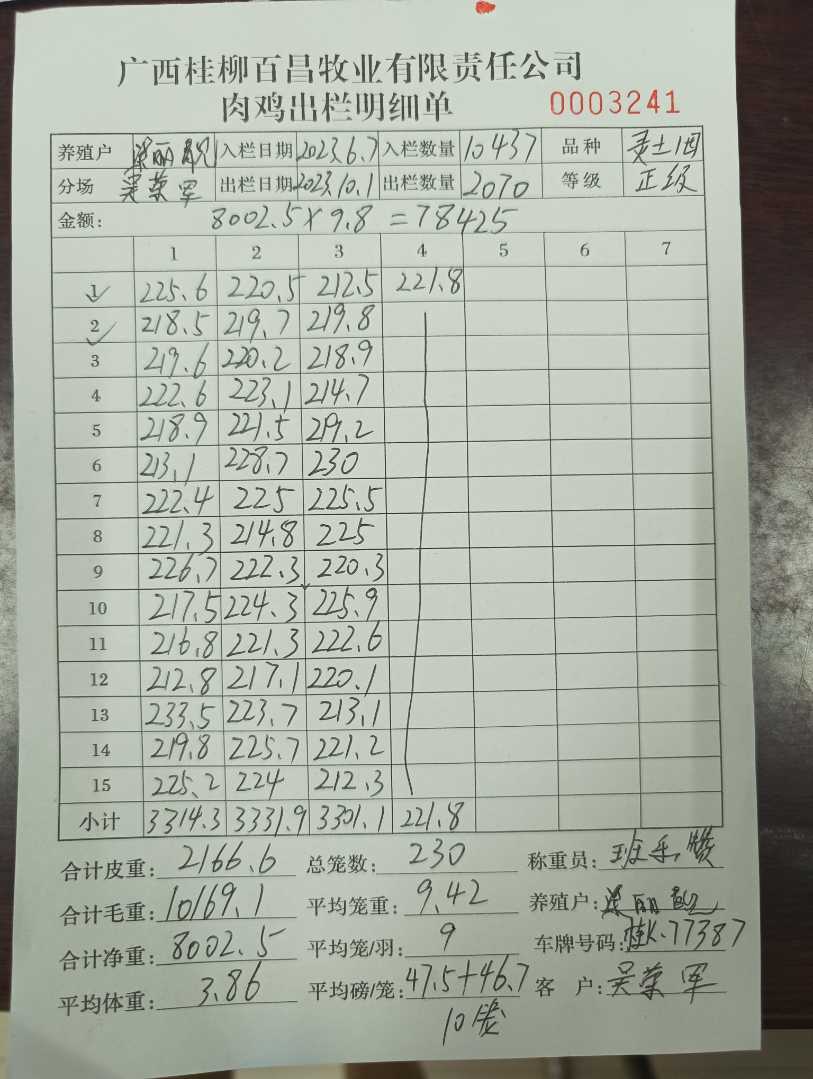 广西桂柳百昌牧业有限责任公司
肉鸡出栏明细单 0003241
养殖户 梁丽 入栏日期 2023.6.7 入栏数量 10437 品种
分场 吴荣军 出栏日期 2023.10.1 出栏数量 2070 等级 正级
金额: 8002.5×9.8=78425
1 2 3 4 5 6 7
1 225.6 220.5 212.5 221.8
2 218.5 219.7 219.8
3 219.6 220.2 218.9
4 222.6 223.1 214.7
5 218.9 221.5 219.2
6 213.1 228.7 230
7 222.4 225 225.5
8 221.3 214.8 225
9 226.7 222.3 220.3
10 217.5 224.3 225.9
11 216.8 221.3 222.6
12 212.8 217.1 220.1
13 233.5 223.7 213.1
14 219.8 225.7 221.2
15 225.2 224 212.3
小计 3314.3 3331.9 3301.1 221.8
合计皮重: 2166.6 总笼数: 230 称重员: 班
合计毛重: 10169.1 平均笼重: 9.42 养殖户: 梁丽
合计净重: 8002.5 平均笼/羽: 9 车牌号码: 桂K.77387
平均体重: 3.86 平均磅/笼: 47.5+46.7 客 户: 吴荣军
10